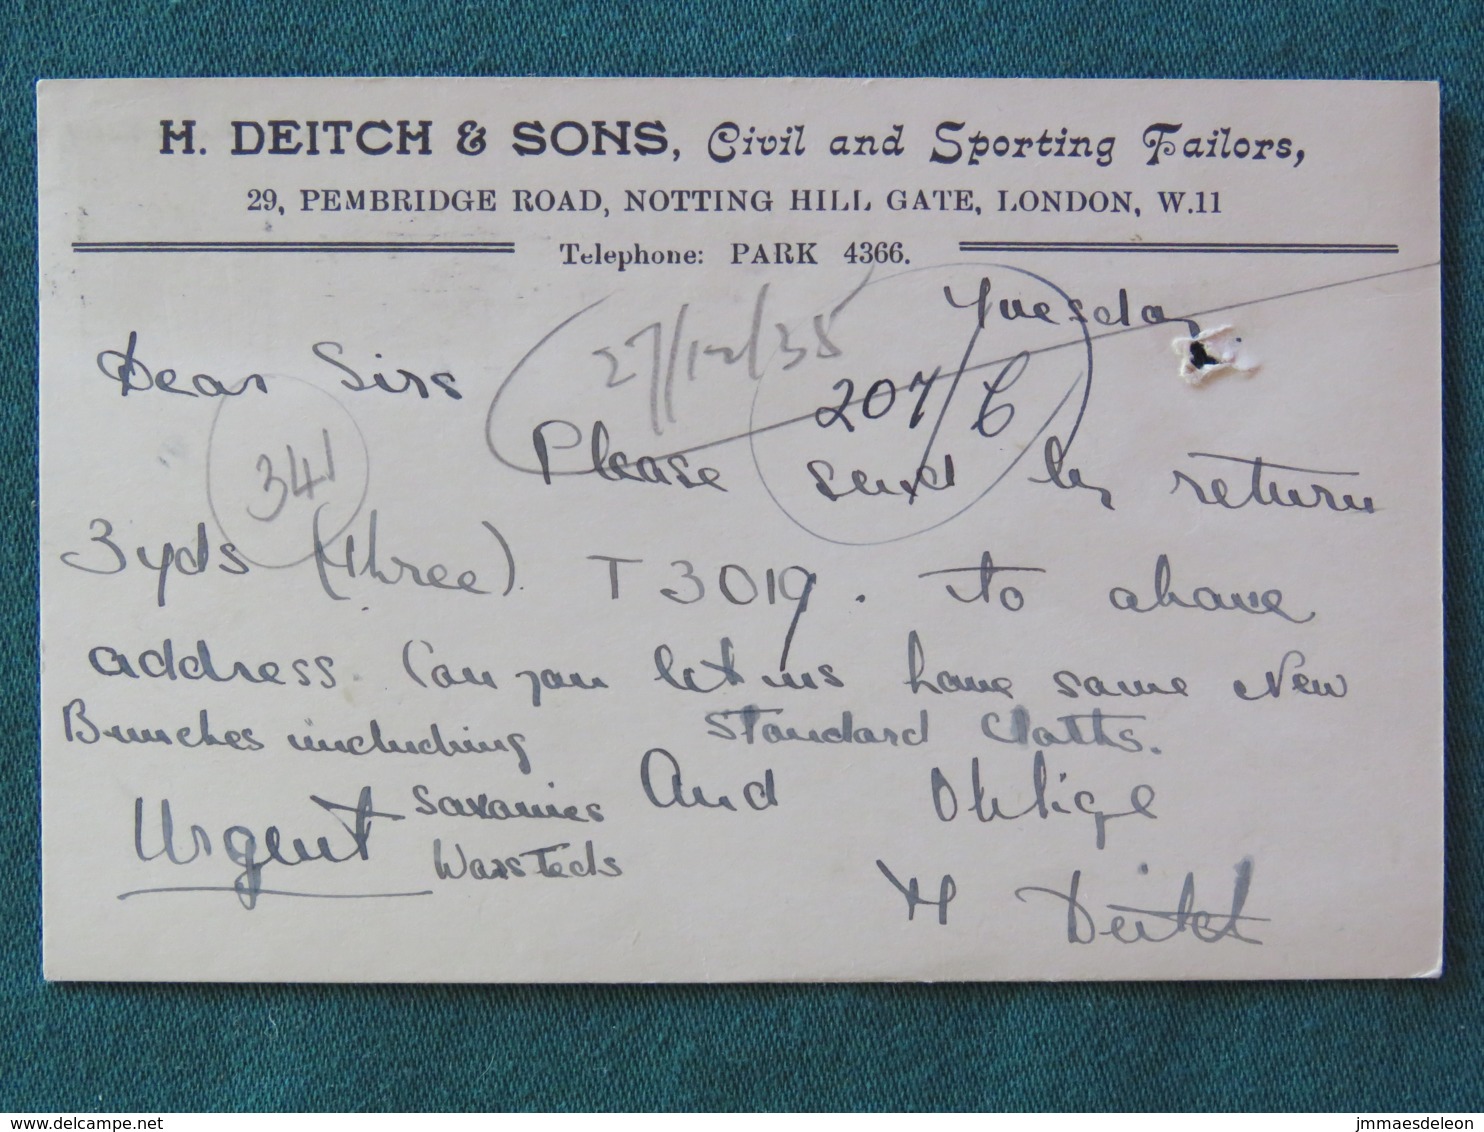 H. DEITCH & SONS, Civil and Sporting Tailors,
29, PEMBRIDGE ROAD, NOTTING HILL GATE, LONDON, W.11
Telephone: PARK 4366.
Tuesday
27/12/35
Dear Sirs
207/C
341
Please send by return
3 yds (three) T3019. to above
address. Can you let us have some New
Bunches including Standard Cloths.
Saxonies And Oblige
Urgent
Worsteds
H Deitch
delcampe.net
jmmaesdeleon